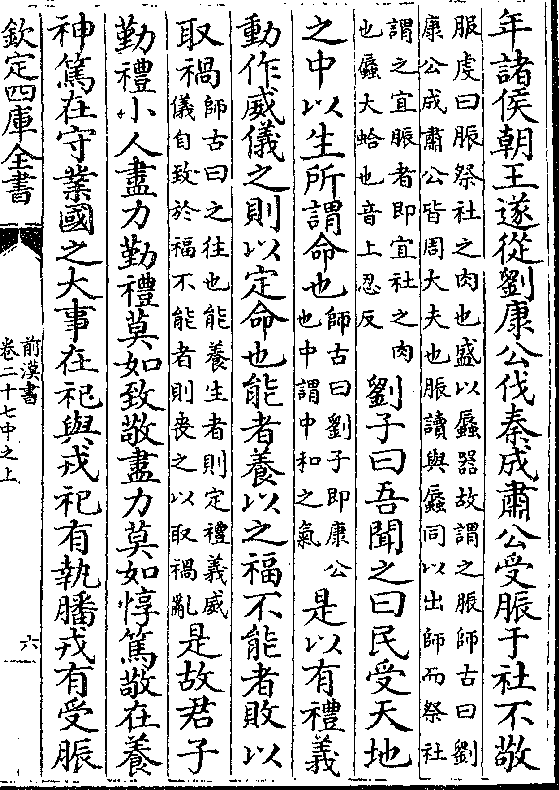 年諸侯朝王遂從劉康公伐秦成肅公受脤于社不敬
服虔曰脤祭社之肉也盛以蜃器故謂之脤師古曰劉
康公成肅公皆周大夫也脤讀與蜃同以出師而祭社
謂之宜脤者即宜社之肉
也蜃大蛤也音上忍反
劉子曰吾聞之曰民受天地
之中以生所謂命也
師古曰劉子即康公
也中謂中和之氣
是以有禮義
動作威儀之則以定命也能者養以之福不能者敗以
取禍
師古曰之往也能養生者則定禮義威
儀自致於福不能者則喪之以取禍亂
是故君子
勤禮小人盡力勤禮莫如致敬盡力莫如惇篤敬在養
神篤在守業國之大事在祀與戎祀有執膰戎有受脤
欽定四庫全書
前漢書
卷二十七中之上
六